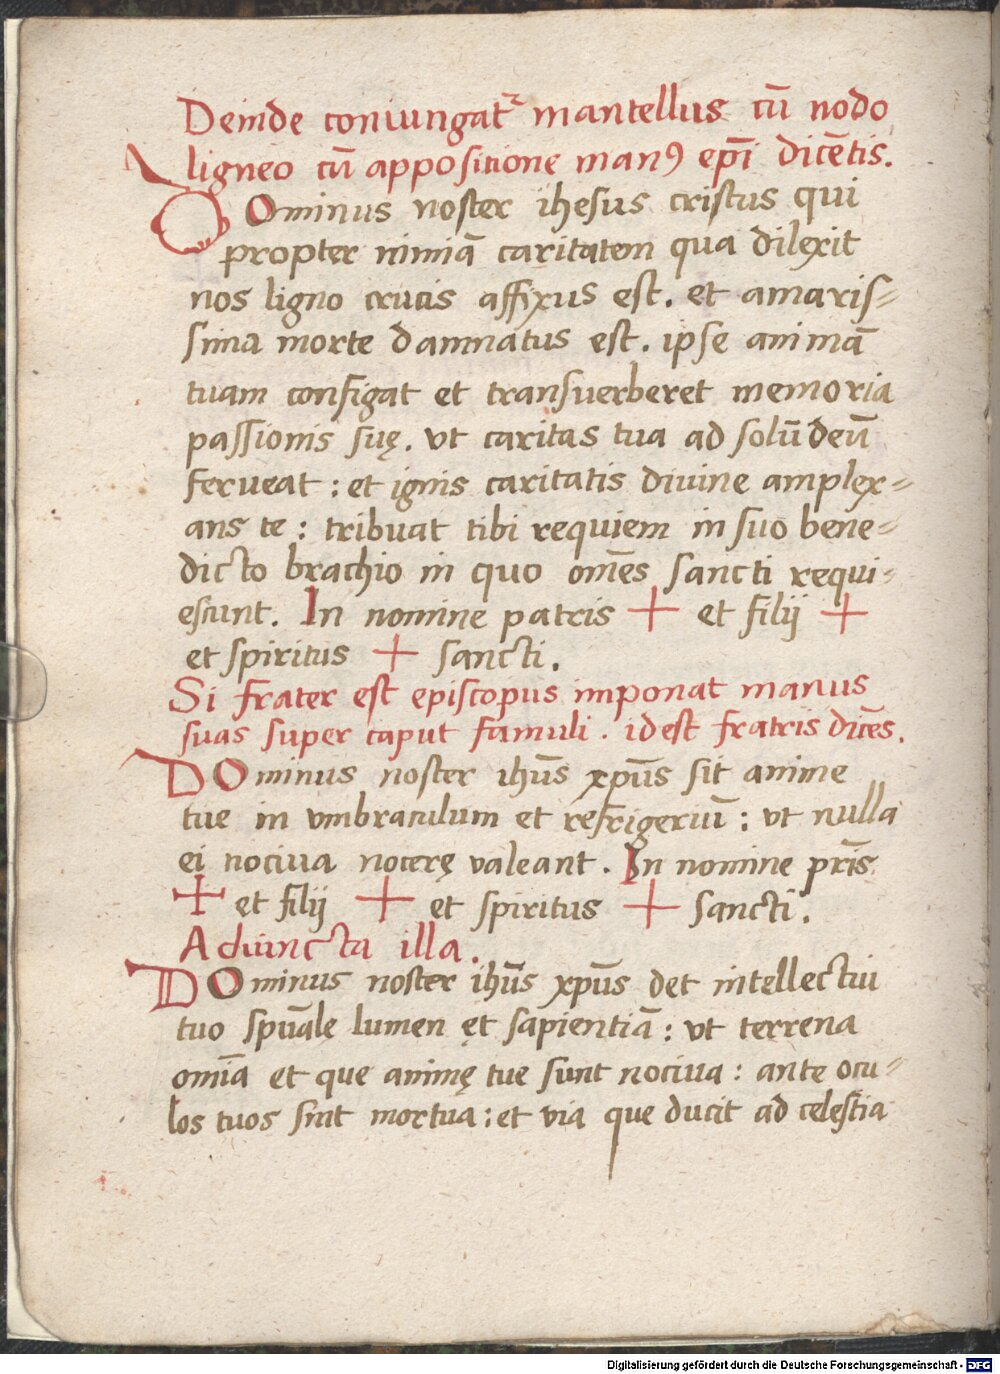 Deinde coniungat᷑ mantellus cū nodo
ligneo cū appositione manꝰ ep̄i dicētis.
DOminus noster ihesus cristus qui
propter nimiā caritatem qua dilexit
nos ligno crucis affixus est. et amaris-
sima morte damnatus est. ipse animā
tuam configat et transuerberet memoria
passionis suę. vt caritas tua ad solū deū
ferueat : et ignis caritatis diuine amplex-
ans te : tribuat tibi requiem in suo bene-
dicto brachio in quo om̄es sancti requi-
escunt. In nomine patris + et filij +
et spiritus + sancti.
Si frater est episcopus imponat manus
suas super caput famuli. idest fratris dicēs.
DOminus noster ihūs xpūs sit anime
tue in vmbraculum et refrigeriū : vt nulla
ei nociua nocerę valeant. In nomine pr̄is
+ et filij + et spiritus + sancti.
Adiuncta illa.
DOminus noster ihūs xpūs det intellectui
tuo spūale lumen et sapientiā : vt terrena
om̄ia et que animę tue sunt nociua : ante ocu-
los tuos sint mortua : et via que ducit ad celestia
Digitalisierung gefördert durch die Deutsche Forschungsgemeinschaft - DFG